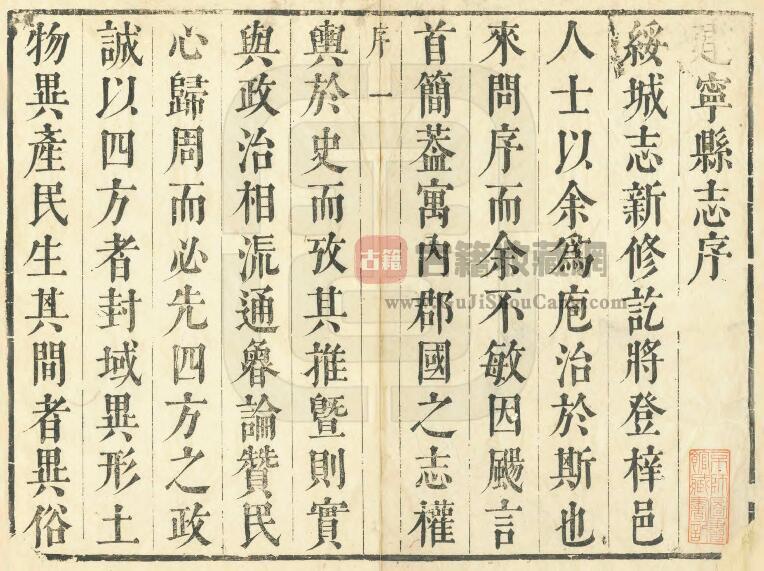 建寧縣志序
綏城志新修訖將登梓邑
人士以余爲庖治於斯也
來問序而余不敏因颺言
首簡葢寓內郡國之志權
序 一
輿於史而攷其推曁則實
與政治相泝通魯論贊民
心歸周而必先四方之政
誠以四方者封域異形土
物異產民生其間者異俗
古籍
古籍收藏網
www.GuJiShouCang.com
京師圖書
館藏書印